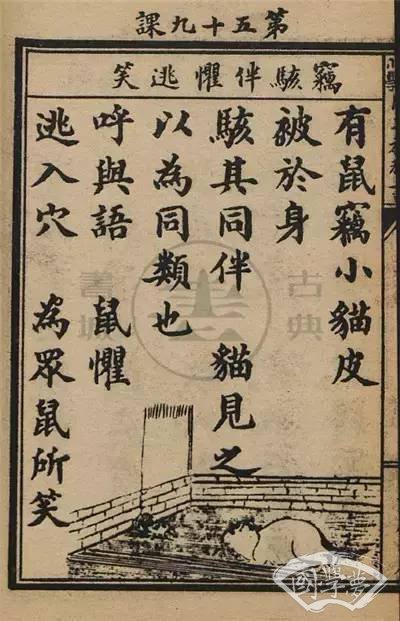 第五十九課
竊駭伴懼逃笑
有鼠竊小貓皮
被於身
駭其同伴　貓見之
以為同類也
呼與語　鼠懼
逃入穴　為眾鼠所笑
古典書城
國學夢